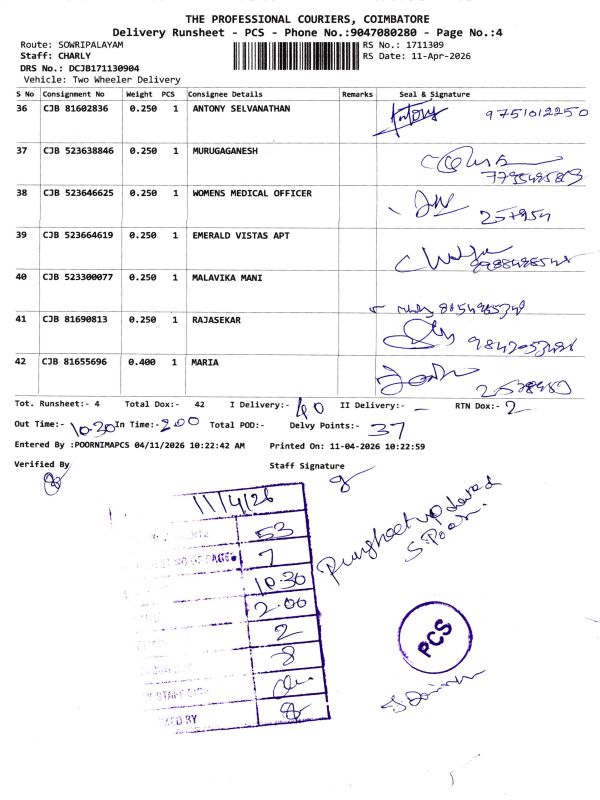 THE PROFESSIONAL COURIERS, COIMBATORE
Delivery Runsheet - PCS - Phone No.:9047080280 - Page No.:4
Route: SOWRIPALAYAM RS No.: 1711309
Staff: CHARLY RS Date: 11-Apr-2026
DRS No.: DCJB171130904
Vehicle: Two Wheeler Delivery
S No Consignment No Weight PCS Consignee Details Remarks Seal & Signature
36 CJB 81602836 0.250 1 ANTONY SELVANATHAN Antony 9751012250
37 CJB 523638846 0.250 1 MURUGAGANESH
38 CJB 523646625 0.250 1 WOMENS MEDICAL OFFICER 257954
39 CJB 523664619 0.250 1 EMERALD VISTAS APT
40 CJB 523300077 0.250 1 MALAVIKA MANI
41 CJB 81690813 0.250 1 RAJASEKAR
42 CJB 81655696 0.400 1 MARIA
Tot. Runsheet:- 4 Total Dox:- 42 I Delivery:- 40 II Delivery:- - RTN Dox:- 2
Out Time:- 10.30 In Time:- 2.00 Total POD:- Delvy Points:- 37
Entered By :POORNIMAPCS 04/11/2026 10:22:42 AM Printed On: 11-04-2026 10:22:59
Verified By Staff Signature
11/4/26
53
OF PAGE 7
10.30
2.00
2
8
STAFF SIGN
BY
Runsheet updated
PCS